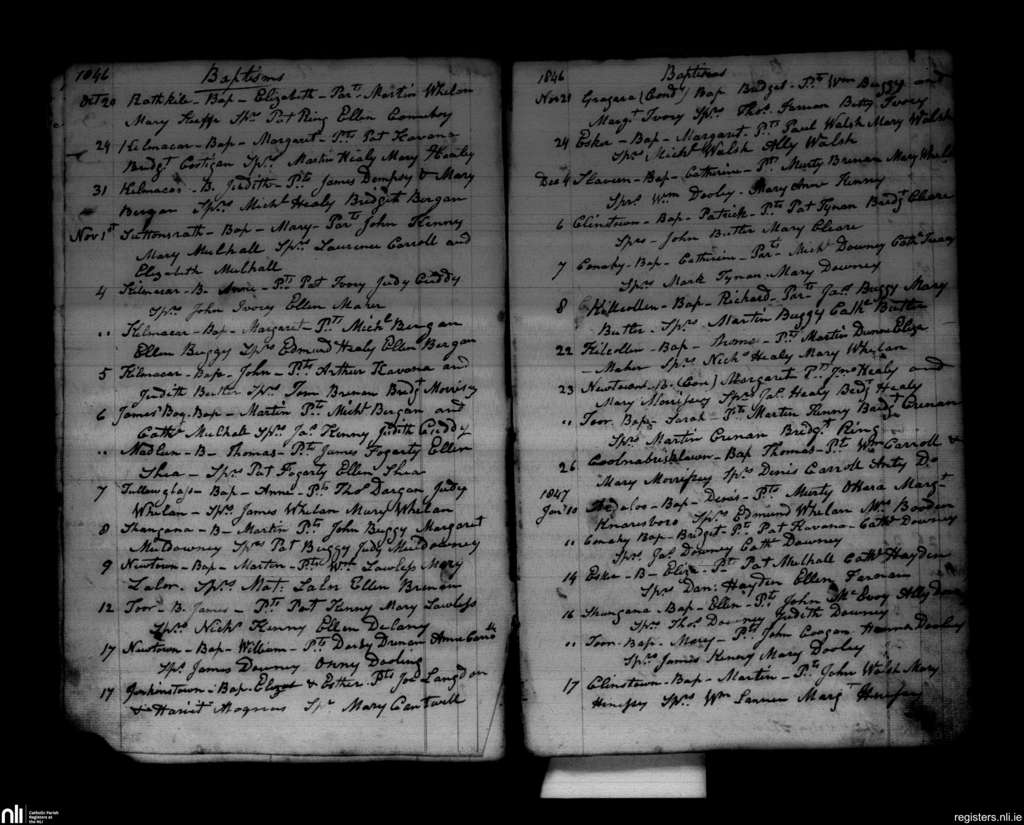 1846 Baptisms
Oct 20 Rathkile - Bap - Elizabeth - Parts Martin Whelan
Mary Keeffe Sprs Pat Ring Ellen
24 Kilmacar - Bap - Margaret - Pts Pat Kavana
Bridgt Costigan Sprs Martin Healy Mary Healy
31 Kilmacar - B. Judith - Pts James Dempsy & Mary
Bergan Sprs Michl Healy Bridget Bergan
Nov 1st Suttonsrath - Bap - Mary - Par John Kenny
Mary Mulhall Sprs Laurence Carroll and
Elizabeth Mulhall
4 Kilmacar - B - Anne - Pts Pat Ivory Judy Cuddy
Sprs John Ivory Ellen Maher
" Kilmacar - Bap - Margaret - Pts Michl Bergan
Ellen Buggy Sprs Edmund Healy Ellen Bergan
5 Kilmacar - Bap - John - Pts Arthur Kavana and
Judith Sprs Tom Brenan Bridt Morrisy
6 James' Bog - Bap - Martin Pts Michl Bergan and
Cath Mulhall Sprs Jas Kenny Judith Cuddy
" - B - Thomas - Pts James Fogarty Ellen
Shea - Sprs Pat Fogarty Ellen Shea
7 - Bap - Anne - Pts Thos Dargan Judy
Whelan - Sprs James Whelan Mary Whelan
8 Shangana - B - Martin Pts John Buggy Margaret
Muldowney Sprs Pat Buggy Judy Muldowney
9 Newtown - Bap - Martin - Pts Wm Lawless Mary
Lalor - Sprs Mat: Lalor Ellen Brenan
12 Toor - B. James - Pts Pat Kenny Mary Lawless
Sprs Nichs Kenny Ellen Delany
17 Newtown - Bap - William - Pts Darby Anne
Sprs James Downey Onny Dooling
17 Jenkinstown - Bap - & Esther - Pts Jos Langdon
& Hariet Spr Mary Cantwell
1846 Baptisms
Nov 21 Gragara (Cond) Bap Bridget - Pts Wm Buggy and
Margt Ivory Sprs Thos Betty Ivory
24 Esker - Bap - Margaret - Pts Paul Walsh Mary Walsh
Sprs Michl Walsh Ally Walsh
Dec 4 - Bap - Catherine - Pts Murty Brenan Mary
Sprs Wm Dooley - Mary Anne Kenny
6 Clinstown - Bap - Patrick - Pts Pat Tynan Bridgt Cleare
Sprs - John Butler Mary Cleare
7 Conahy - Bap - Catherine - Parts Michl Downey Cathe
Sprs Mark Tynan - Mary Downey
8 Kilcollen - Bap - Richard - Parts Jas Buggy Mary
Butler - Sprs Martin Buggy Cath Butler
22 Kilcollen - Bap - - Pts Martin Eliza
- Maher Sprs Nichs Healy Mary Whelan
23 Newtown - B - (Con) Margaret Pts Jno Healy and
Mary Morrissey Sprs Jas Healy Bidy Healy
" Toor - Bap - Sarah - Pts Martin Kenny Bridt Crenan
Sprs Martin Crenan Bridgt Ring
26 Coolnabrisklawn - Bap Thomas - Pts Wm Carroll &
Mary Morrissey Sprs Denis Carroll Anty Do
1847
Jany 10 - Bap - Denis - Pts Murty OHara Margt
Knaresboro Sprs Edmund Whelan Mrs
" Conahy Bap - Bridget - Pts Pat Kavana - Cathe Downey
Sprs Jas Downey Cath Downey
14 Esker - B - Eliza - Pts Pat Mulhall Cath Hayden
Sprs Danl Hayden Ellen
16 Shangana - Bap - Ellen - Pts John McEvoy Ally
Sprs Thos Downey Judith Downey
" Toor - Bap - Mary - Pts John Coogan Dooley
Sprs James Kenny Mary Dooley
17 Clinstown - Bap - Martin - Pts John Walsh Mary
Henessy Sprs Wm Margt Henessy
nli
Catholic Parish
Registers at
the NLI
registers.nli.ie